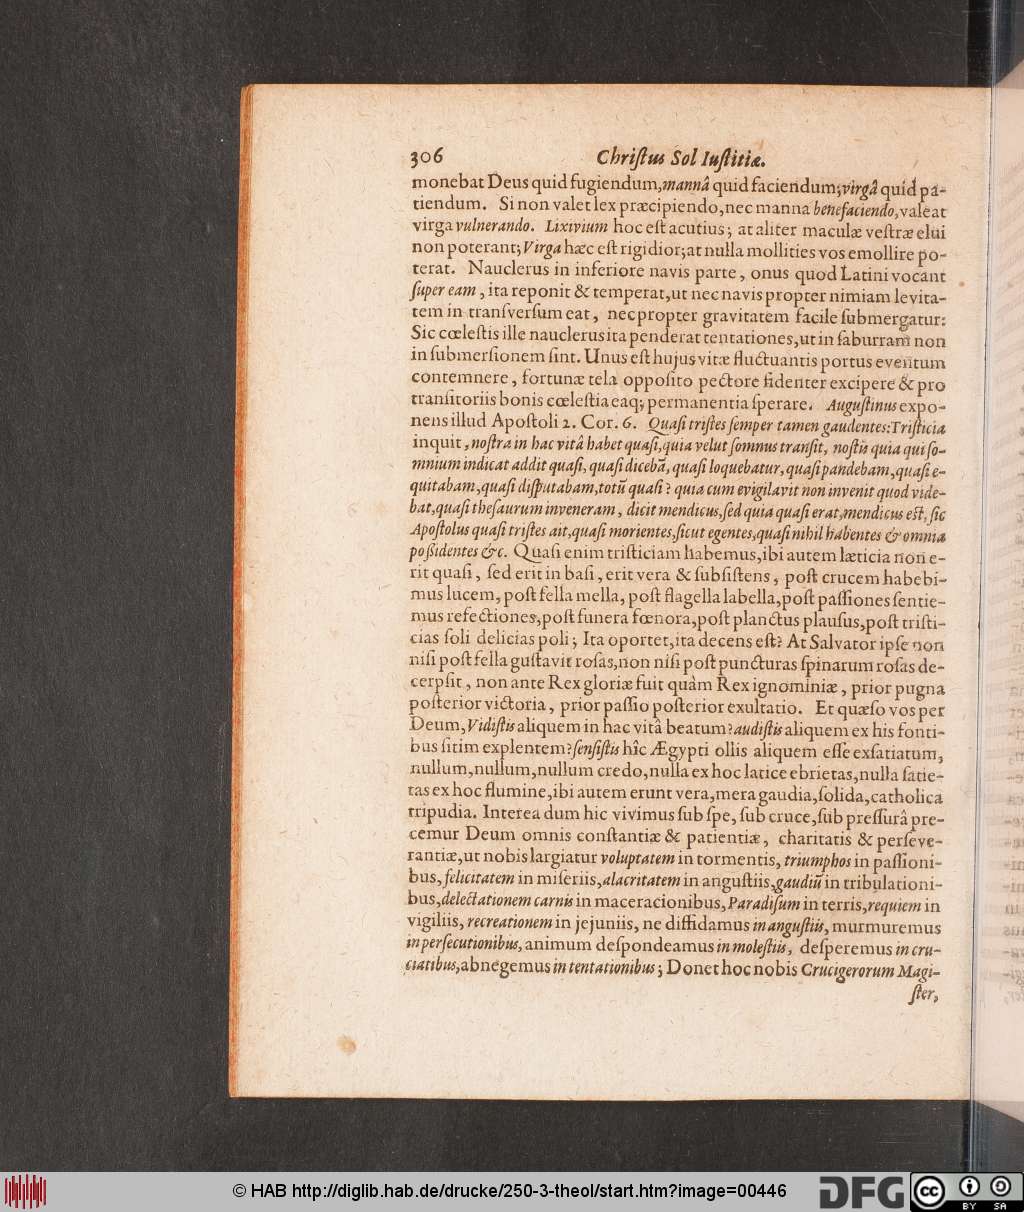 306 Christus Sol Iustitiæ.
monebat Deus quid fugiendum, mannâ quid faciendum; virgâ quid pa-
tiendum. Si non valet lex præcipiendo, nec manna benefaciendo, valeat
virga vulnerando. Lixivium hoc est acutius; at aliter maculæ vestræ elui
non poterant; Virga hæc est rigidior; at nulla mollities vos emollire po-
terat. Nauclerus in inferiore navis parte, onus quod Latini vocant
super eam, ita reponit & temperat, ut nec navis propter nimiam levita-
tem in transversum eat, nec propter gravitatem facile submergatur:
Sic cœlestis ille nauclerus ita penderat tentationes, ut in saburram non
in submersionem sint. Unus est hujus vitæ fluctuantis portus eventum
contemnere, fortunæ tela opposito pectore fidenter excipere & pro
transitoriis bonis cœlestia eaq; permanentia sperare. Augustinus expo-
nens illud Apostoli 2. Cor. 6. Quasi tristes semper tamen gaudentes: Tristicia
inquit, nostra in hac vitâ habet quasi, quia velut somnus transit, nostis quia qui so-
mnium indicat addit quasi, quasi dicebā, quasi loquebatur, quasi pandebam, quasi e-
quitabam, quasi disputabam, totū quasi? quia cum evigilavit non invenit quod vide-
bat, quasi thesaurum inveneram, dicit mendicus, sed quia quasi erat, mendicus est, sic
Apostolus quasi tristes ait, quasi morientes, sicut egentes, quasi nihil habentes & omnia
possidentes &c. Quasi enim tristiciam habemus, ibi autem læticia non e-
rit quasi, sed erit in basi, erit vera & subsistens, post crucem habebi-
mus lucem, post fella mella, post flagella labella, post passiones sentie-
mus refectiones, post funera fœnora, post planctus plausus, post tristi-
cias soli delicias poli; Ita oportet, ita decens est? At Salvator ipse non
nisi post fella gustavit rosas, non nisi post puncturas spinarum rosas de-
cerpsit, non ante Rex gloriæ fuit quàm Rex ignominiæ, prior pugna
posterior victoria, prior passio posterior exultatio. Et quæso vos per
Deum, Vidistis aliquem in hac vitâ beatum? audistis aliquem ex his fonti-
bus sitim explentem? sensistis hîc Ægypti ollis aliquem esse exsatiatum,
nullum, nullum, nullum credo, nulla ex hoc latice ebrietas, nulla satie-
tas ex hoc flumine, ibi autem erunt vera, mera gaudia, solida, catholica
tripudia. Interea dum hic vivimus sub spe, sub cruce, sub pressurâ pre-
cemur Deum omnis constantiæ & patientiæ, charitatis & perseve-
rantiæ, ut nobis largiatur voluptatem in tormentis, triumphos in passioni-
bus, felicitatem in miseriis, alacritatem in angustiis, gaudiū in tribulationi-
bus, delectationem carnis in maceracionibus, Paradisum in terris, requiem in
vigiliis, recreationem in jejuniis, ne diffidamus in angustiis, murmuremus
in persecutionibus, animum despondeamus in molestiis, desperemus in cru-
ciatibus, abnegemus in tentationibus; Donet hoc nobis Crucigerorum Magi-
ster,
© HAB http://diglib.hab.de/drucke/250-3-theol/start.htm?image=00446
DFG
cc BY SA